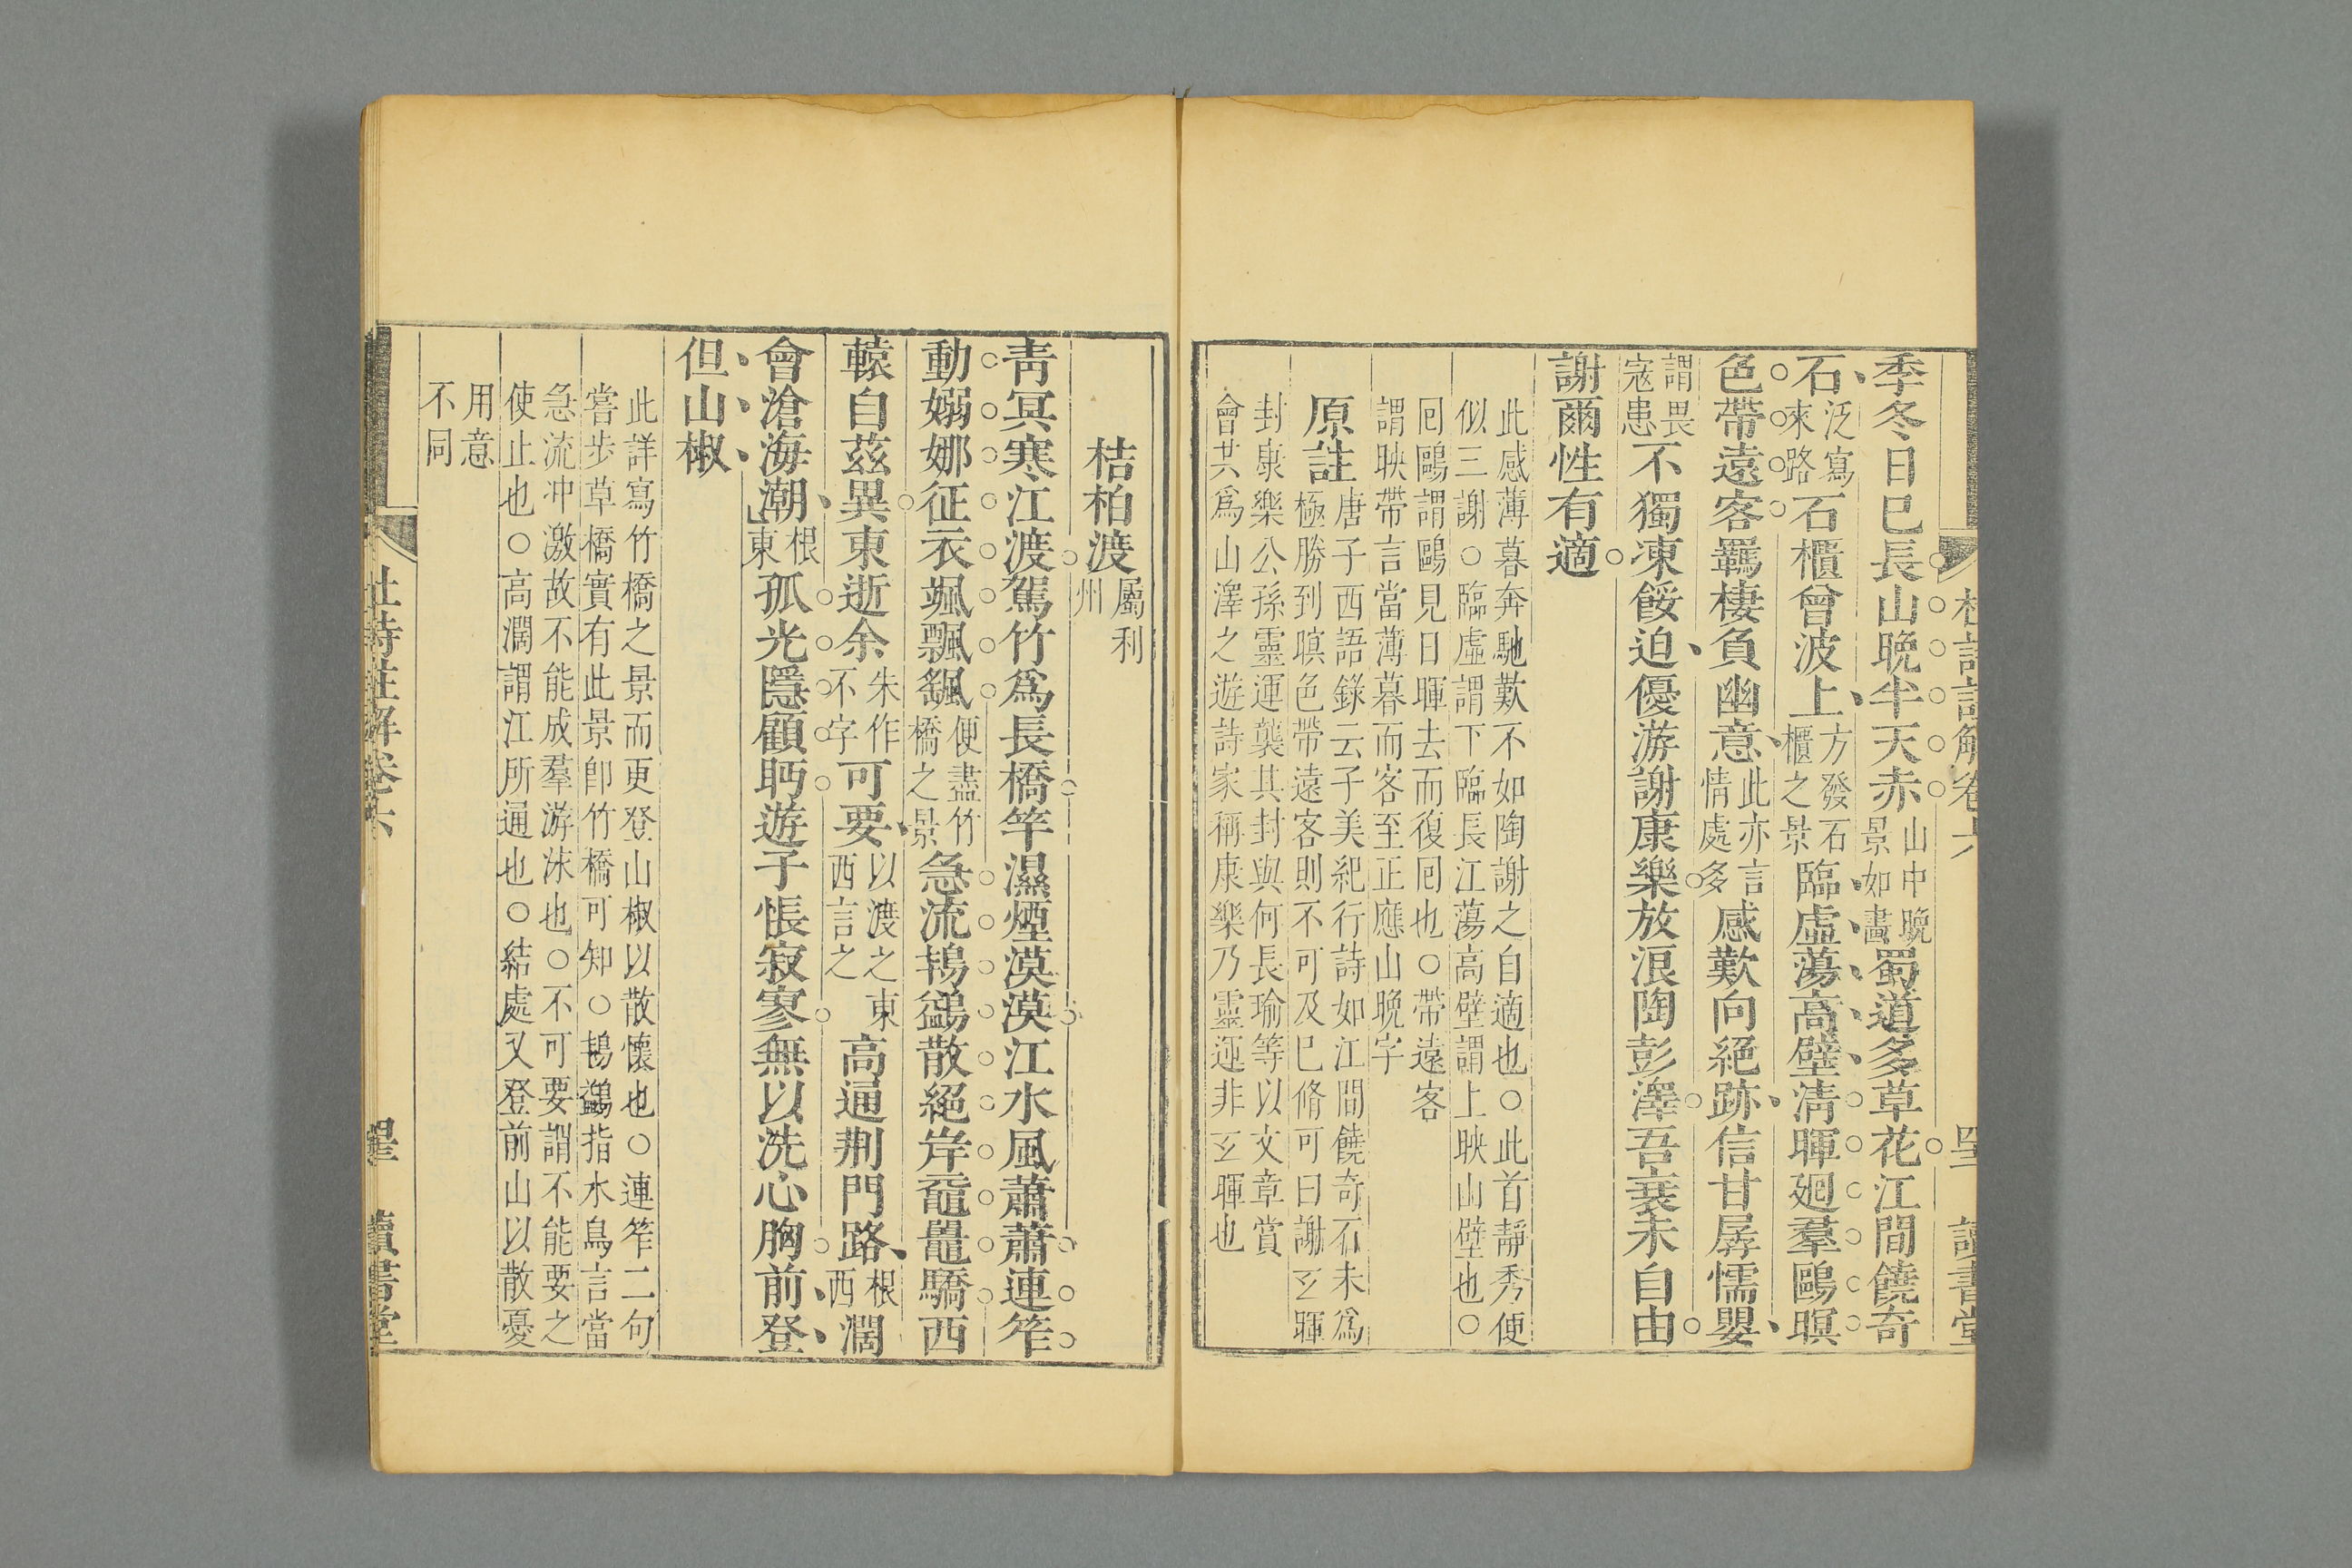 季冬日巳長山晩半天赤山中晩景如畫蜀道多草花江間饒奇
石泛寫來路石櫃曾波上方發石櫃之景臨虛蕩高壁淸暉廻羣鷗暝
色帶遠客羈棲負幽意此亦言情處多感歎向絕跡信甘孱懦嬰
謂畏寇患不獨凍餒迫優游謝康樂放浪陶彭澤吾衰未自由
謝爾性有適
此感薄暮奔馳歎不如陶謝之自適也○此首靜秀便
似三謝○臨虛謂下臨長江蕩高壁謂上映山壁也○
囘鷗謂鷗見日暉去而復囘也○帶遠客
謂映帶言當薄暮而客至正應山晩字
原註唐子西語錄云子美紀行詩如江間饒奇石未爲
極勝到暝色帶遠客則不可及巳脩可曰謝玄暉
封康樂公孫靈運襲其封與何長瑜等以文章賞
會共爲山澤之遊詩家稱康樂乃靈運非玄暉也
杜詩註解卷六 讀書堂
桔柏渡屬利州
靑冥寒江渡駕竹爲長橋竿濕煙漠漠江水風蕭蕭連笮
動嫋娜征衣颯飄颻便盡竹橋之景急流鴇鷁散絕岸黿鼉驕西
轅自茲異東逝余朱作不字可要以渡之東西言之高通荆門路根西濶
會滄海潮根東孤光隱顧眄遊子悵寂寥無以洗心胸前登
但山椒
此詳寫竹橋之景而更登山椒以散懷也○連笮二句
嘗步草橋實有此景卽竹橋可知○鴇鷁指水鳥言當
急流冲激故不能成羣游泳也○不可要謂不能要之
使止也○高濶謂江所通也○結處又登前山以散憂
用意
不同
杜詩註解卷六 讀書堂